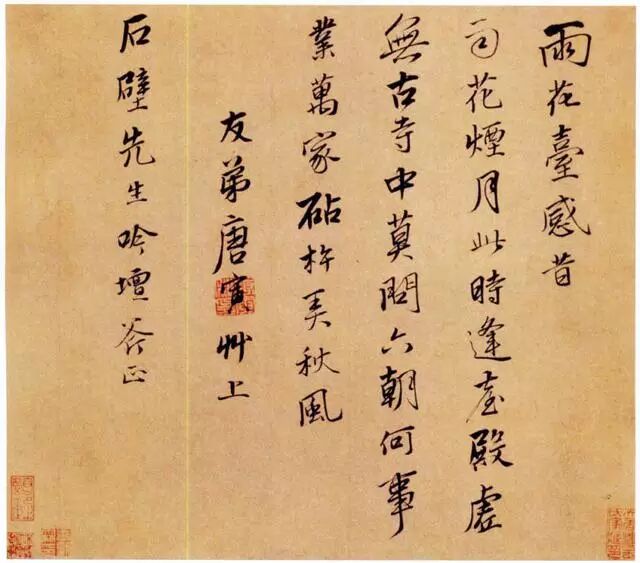 雨花臺感昔
花煙月此時逢臺殿虛
無古寺中莫問六朝何事
業萬家砧杵美秋風
友弟唐寅艸上
石壁先生吟壇斧正